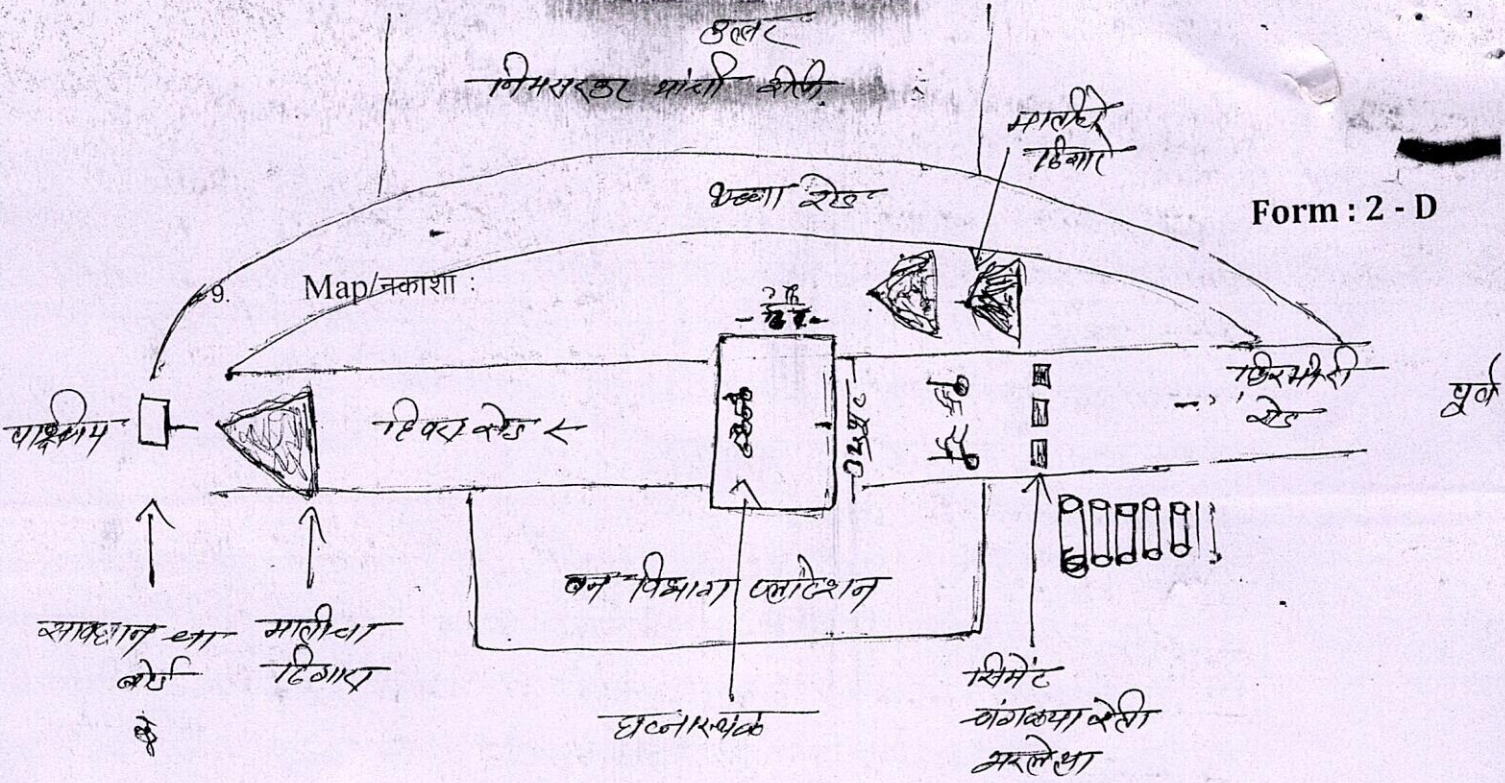 उत्तर
निमसरकर यांची शेती
मातीचे
ढिगारे
कच्चा रोड
Form : 2 - D
9. Map/नकाशा :
पूर्व
पश्चिम
हिवरा रोड ←
रोड
वन विभाग प्लांटेशन
सावधान चा
बोर्ड
मातीचा
ढिगारा
घटनास्थळ
सिमेंट
बंगळ्या रेती
भरलेल्या